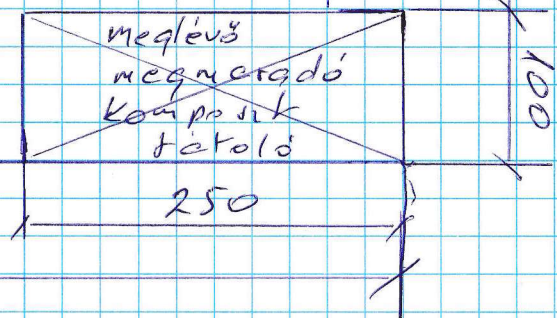 meglévő
megmaradó
komposzt
tároló
250
100